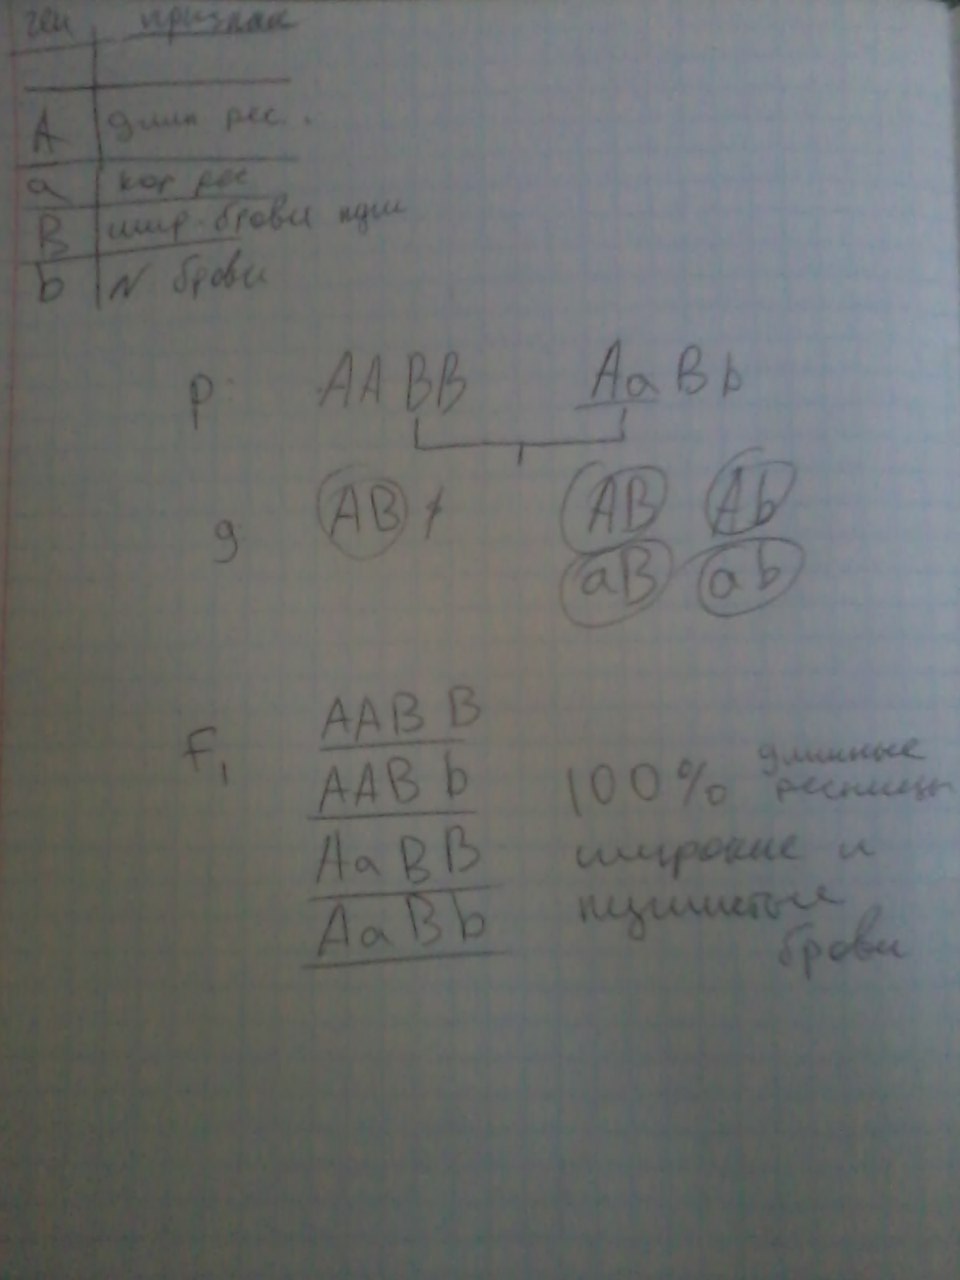 ген признак
A длин рес.
a кор рес
B шир. брови пуш
b N брови
P: AABB AaBb
g AB AB Ab
aB ab
F1 AABB
AABb 100% длинные ресницы
AaBB широкие и
AaBb пушистые
брови